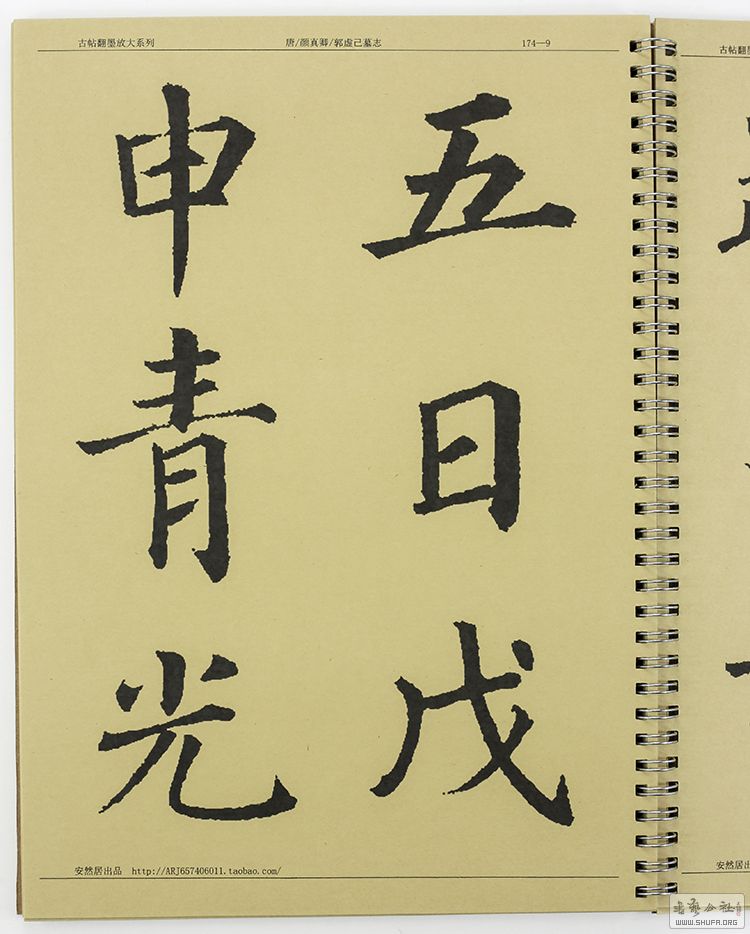 古帖翻墨放大系列 唐/颜真卿/郭虚己墓志 174—9
五日戊
申青光
安然居出品 http://ARJ657406011.taobao.com/
古帖翻墨
安然居出
书艺公社
WWW.SHUFA.ORG